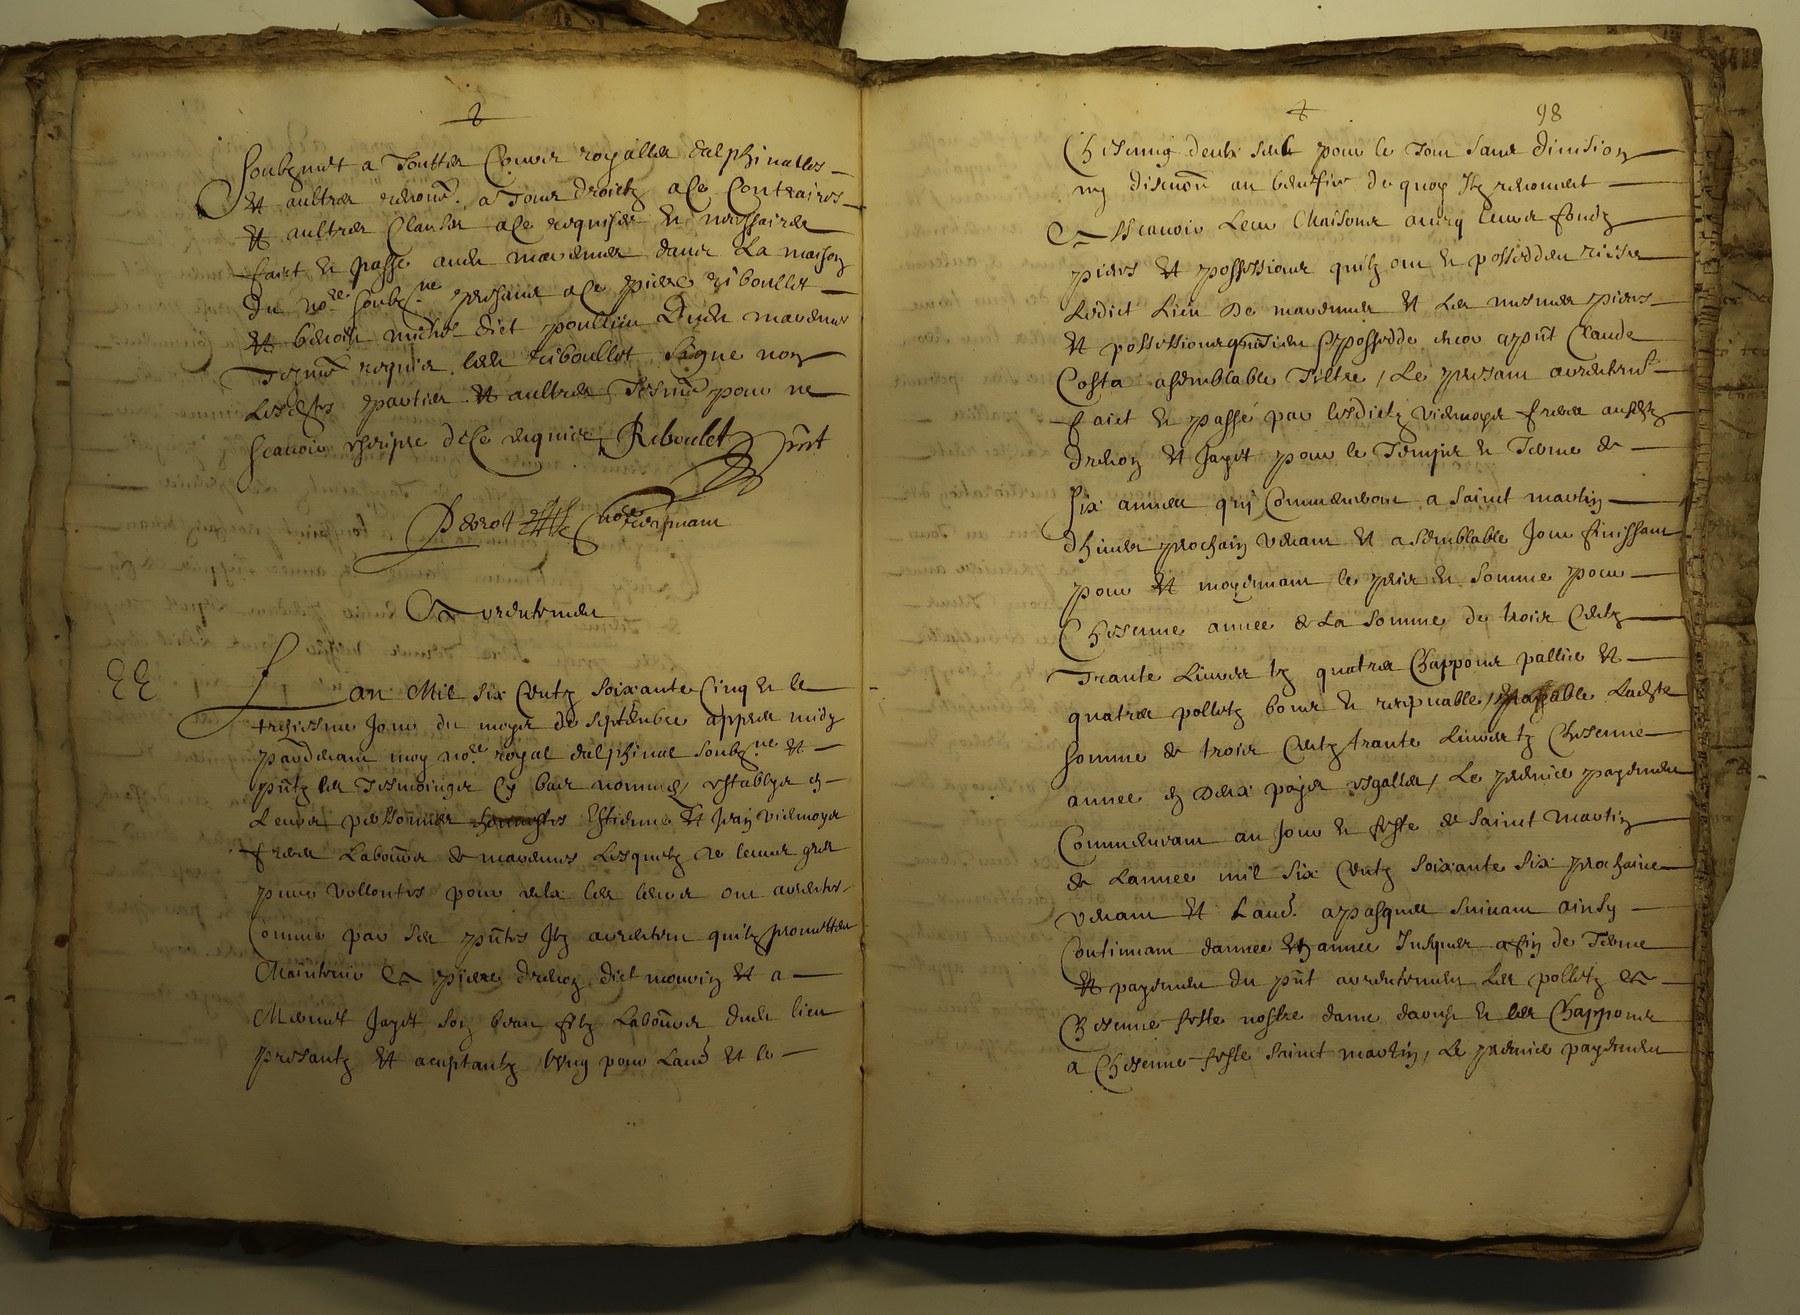 soubzmet a touttes Cours royalles dalphinalles
et aultres renon. a tous droictz a ce Contraires
et aultres Clauses a ce requises et necessaires
faict et passé audit mavernes dans La maison
du no.re soubz.ne presans a ce pierre riboullet
et benoist michel dict poullieu dudit
tesmoins requis led riboullet signe non
Lesdites parties et aultres tesmoins pour ne
scavoir escripre de ce requis Riboulet pnt
no.re recepvant
Arrentemen
Lan Mil six Centz soixante Cinq et le
treziesme Jour du moys de septembre appres midy
pardevant moy no.re royal dalphinal soubz.ne et
pntz les tesmoingz Cy bas nommes establys en
Leurs personnes Estienne et Jean
freres Labours de Lesquelz de leurs gres
pures vollontes pour eulx les leurs ont arrentes
Comme par ses pntes Ilz arrentent quilz promettent
Maintenir A pierre dict et a
Mermet son beau filz Labour dudit lieu
presantz et aceptantz Lung pour Laut. et le
98
Chescung deulx seul pour le tout sans division
ny discution au beneffice de quoy Ilz renoncent
A Scavoir Leur Maisons avecq leurs fondz
pieces et possessions quilz ont et possedent riesre
Ledict Lieu De et Les mesmes pieces
et possessions possedde encor a pnt Claude
Costa a semblable tiltre / Le presant arrentement
faict et passé par lesdictz freres ausdictz
et pour le temps et terme de
six annees qui Commenceront a saint martin
dhiver prochain venant et a semblable Jour finissant
pour et moyennant le pris et somme pour
Chesenne annee de La somme de trois Centz
trante Livres tz quatres Chappons pallies et
quatres polletz bons et receptuable, payable Ladite
somme de trois Centz trante Livres tz Chesenne
annee en Deux payes esgalles, Le premier payement
Commencant au Jour et feste de saint Martin
de Lannee mil six Centz soixante six prochaine
venant et Laut. a pasques suivant ainsy
Continuant dannee en annee Jusques a fin de terme
et payement du pnt arrentement Les polletz A
Chesenne feste nostre dame daoust et les Chappons
a Chesenne feste saint martin, Le premier payement